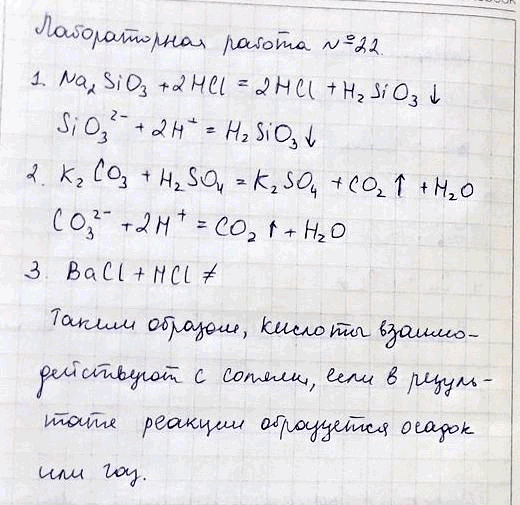 Лабораторная работа №22.
1. Na₂SiO₃ + 2HCl = 2HCl + H₂SiO₃↓
SiO₃²⁻ + 2H⁺ = H₂SiO₃↓
2. K₂CO₃ + H₂SO₄ = K₂SO₄ + CO₂↑ + H₂O
CO₃²⁻ + 2H⁺ = CO₂↑ + H₂O
3. BaCl + HCl ≠
Таким образом, кислоты взаимо-
действуют с солями, если в резуль-
тате реакции образуется осадок
или газ.